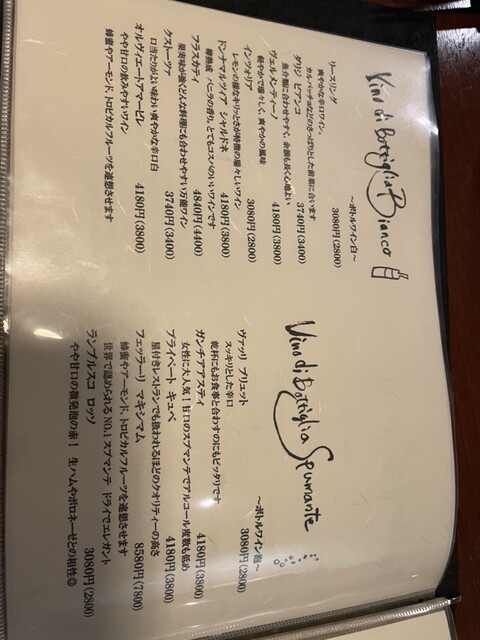 Vino di Bottiglia Bianco
～ボトルワイン白～
リースリング 3080円(2800)
爽やかな辛口ワイン。
カルパッチョなどのさっぱりとした前菜に合います
ダリジ ビアンコ 3740円(3400)
魚介類に合わせやすく、余韻も長く心地よい
ヴェルメンティーノ 4180円(3800)
軽やかで瑞々しく、爽やかな風味
インツォリア 3080円(2800)
レモンの様なキリっとさが特徴の瑞々しいワイン
ドンナマルツィア シャルドネ 4180円(3800)
樽熟成 バニラの香り。とてもコスパのいいワインです
フラスカティ 4840円(4400)
果実味が強くどんな料理にも合わせやすい万能ワイン
クストーツァ 3740円(3400)
口当たりがよい味わい爽やかな辛口白
オルヴィエートアマービレ 4180円(3800)
やや甘口の飲みやすいワイン
蜂蜜やアーモンド、トロピカルフルーツを連想させます
Vino di Bottiglia Spumante
～ボトルワイン泡～
ヴァッリ ブリュット 3080円(2800)
スッキリとした辛口
乾杯にもお食事と合わすのにもピッタリです
ガンチアアスティ 4180円(3800)
女性に大人気！甘口のスプマンテでアルコール度数も低め
プライベート キュベ 4180円(3800)
星付きレストランでも扱われるほどのクオリティーの高さ
フェッラーリ マキシマム 8580円(7800)
蜂蜜やアーモンド、トロピカルフルーツを連想させます
世界で認められるNO.1スプマンテ ドライでエレガント
ランブルスコ ロッソ 3080円(2800)
やや甘口の微発泡の赤！ 生ハムやボロネーゼとの相性◎